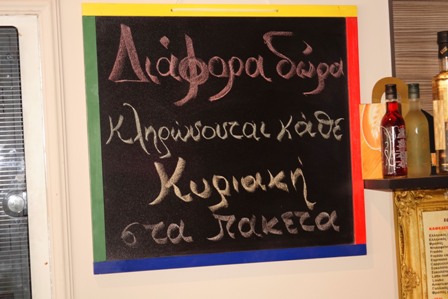 Διάφορα δώρα
Κληρώνονται κάθε
Κυριακή
στα πακέτα